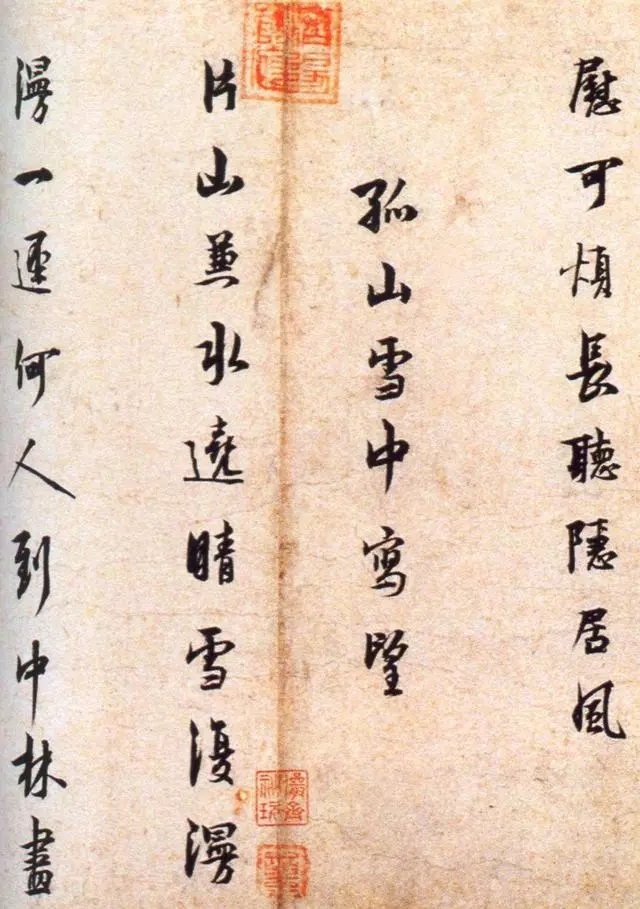 慰可煩長聽隱居風
孤山雪中寫望
片山兼水遶晴雪復漫
漫一逕何人到中林盡